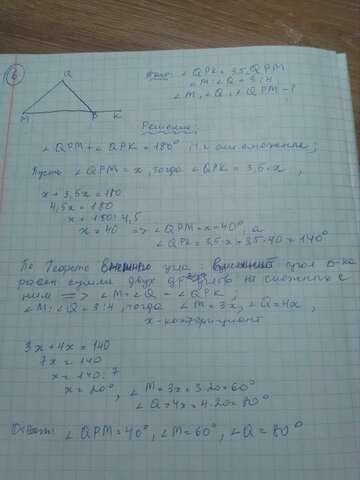 6
Q
M
P
K
Дано: ∠QPK = 3,5∠QPM
∠M:∠Q = 3:4
∠M, ∠Q, ∠QPM - ?
Решение:
∠QPM + ∠QPK = 180°, т.к. они смежные;
Пусть ∠QPM = x, тогда ∠QPK = 3,5·x,
x + 3,5x = 180
4,5x = 180
x = 180:4,5
x = 40 => ∠QPM = x = 40°, а
∠QPK = 3,5·x = 3,5·40 = 140°
По теореме угла: угол
равен сумме двух углов не смежных с
ним => ∠M + ∠Q = ∠QPK,
∠M:∠Q = 3:4, тогда ∠M = 3x, ∠Q = 4x,
x - коэффициент
3x + 4x = 140
7x = 140
x = 140:7
x = 20°, ∠M = 3x = 3·20 = 60°
∠Q = 4x = 4·20 = 80°
Ответ: ∠QPM = 40°, ∠M = 60°, ∠Q = 80°